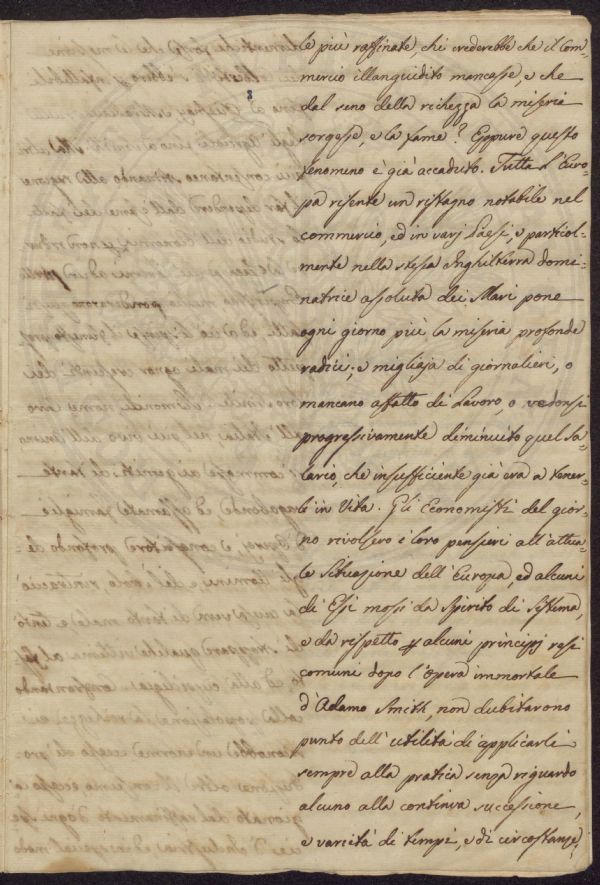 le più raffinate chi crederebbe che il Com=
mercio illanguidito mancasse, e che
dal seno della richezza la miseria
sorgesse, e la fame? Eppure questo
fenomeno è già accaduto. Tutta l'Euro=
pa risente un ristagno notabile nel
commercio, ed in varj Paesi, e particol=
mente nella stessa Inghilterra domi=
natrice assoluta dei Mari pone
ogni giorno più la miseria profonde
radici; e migliaja di giornalieri, o
mancano affatto di Lavoro, o vedonsi
progressivamente diminuito quel Sa=
lario, che insufficiente già era a tener=
li in Vita. Gli Economisti del gior=
no rivolsero i loro pensieri all'attua=
le Situazione dell'Europa, ed alcuni
di Essi mossi da Spirito di Sistema,
e da rispetto alcuni principj resi
comuni dopo l'opera immortale
d'Adamo Smith, non dubitarono
punto dell'utilità di applicarli
sempre alla pratica senza riguardo
alcuno alla continua successione,
e varietà di tempi, e di circostanze,